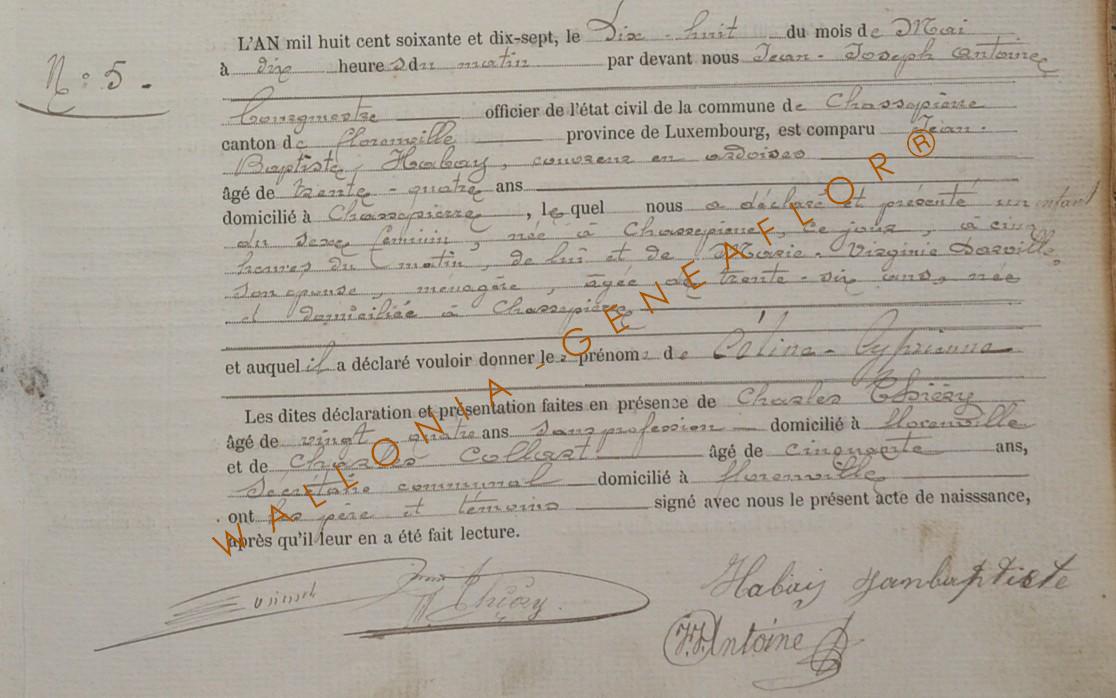 N: 5.
L'AN mil huit cent soixante et dix-sept, le Dix-huit du mois de Mai
à dix heures du matin par devant nous Jean-Joseph Antoine
Bourgmestre officier de l'état civil de la commune de Chassepierre
canton de Florenville province de Luxembourg, est comparu Jean-
Baptiste Habay, couvreur en ardoises
âgé de trente-quatre ans
domicilié à Chassepierre, lequel nous a déclaré et présenté un enfant
du sexe féminin, née à Chassepierre, ce jour, à cinq
heures du matin, de lui et de Marie-Virginie Darville,
son épouse, ménagère, âgée de trente-six ans, née
et domiciliée à Chassepierre
et auquel il a déclaré vouloir donner les prénoms de Célina-Cyprienne
Les dites déclaration et présentation faites en présence de Charles Thiéry
âgé de vingt quatre ans sans profession domicilié à Florenville
et de Charles Collart âgé de cinquante ans,
Secrétaire communal domicilié à Florenville
ont les père et témoins signé avec nous le présent acte de naisssance,
après qu'il leur en a été fait lecture.
Thiéry Habay Janbaptiste
J.J. Antoine
WALLONIA - GENEAFLOR ®